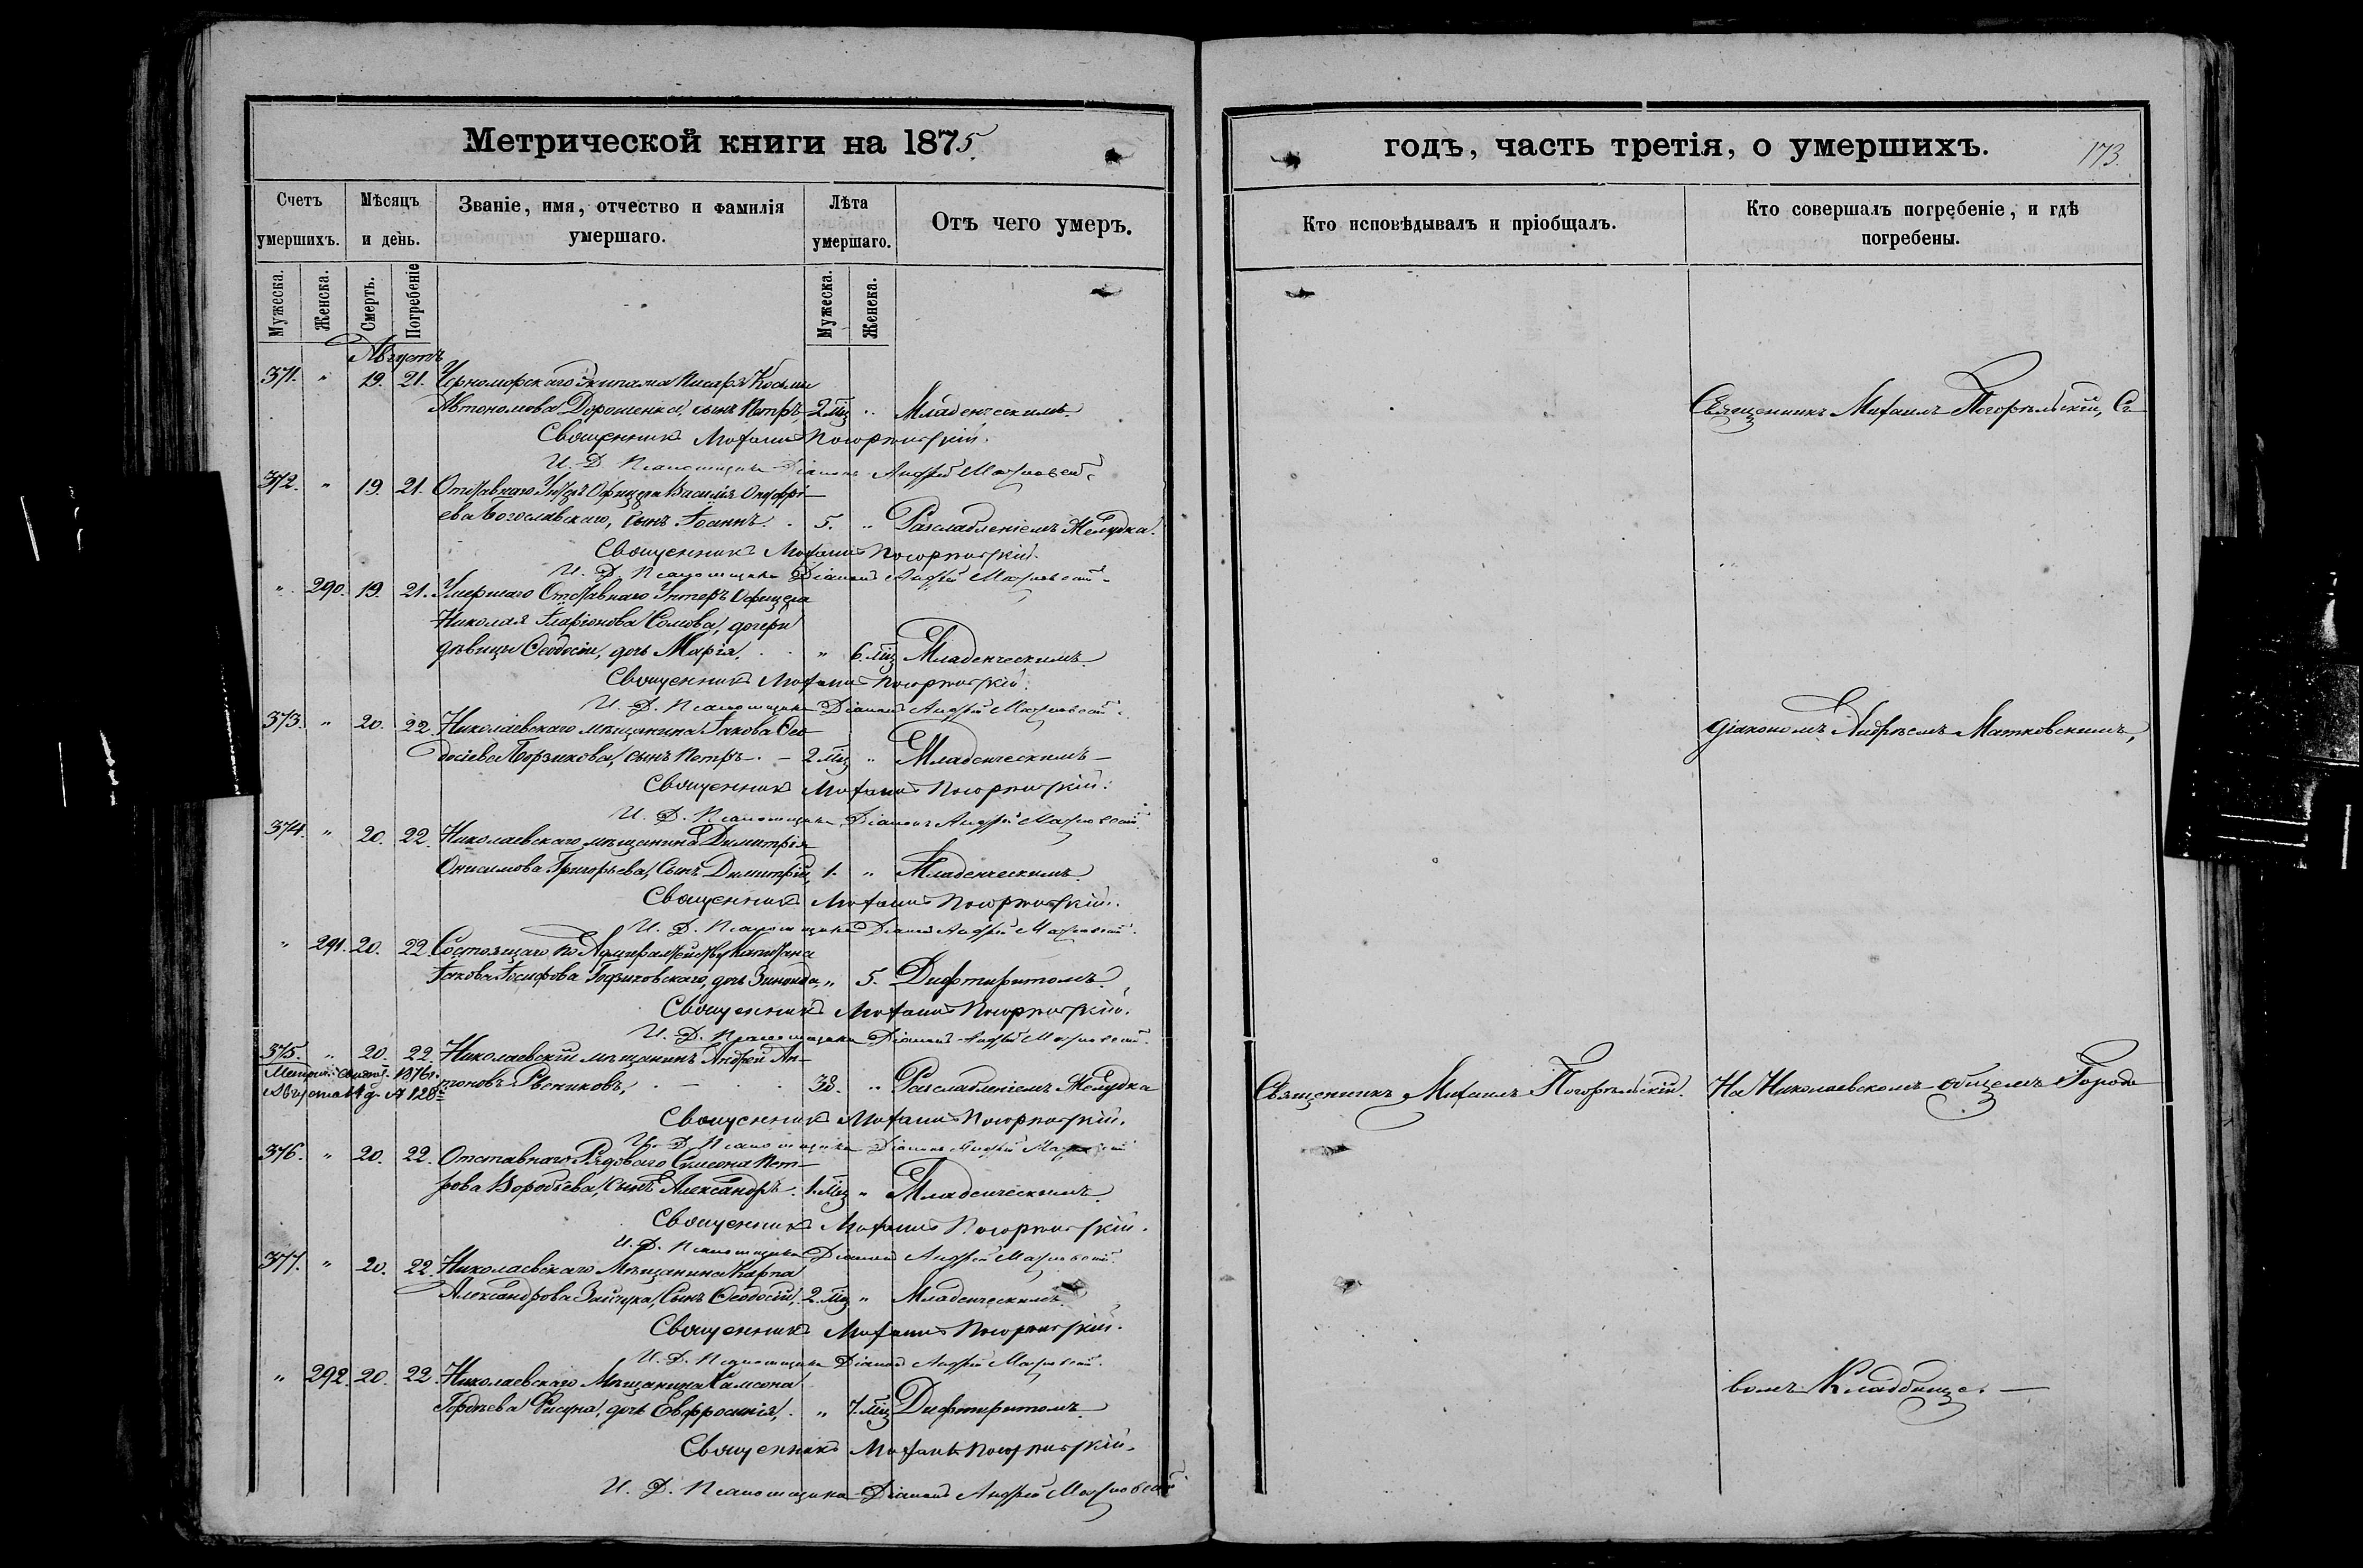 Метрической книги на 1875
Счетъ умершихъ.
Мѣсяцъ и день.
Званіе, имя, отчество и фамилія умершаго.
Лѣта умершаго.
Отъ чего умеръ.
Мужеска.
Женска.
Смерть.
Погребеніе
Мужеска.
Женска.
Августъ
371. " 19. 21. Черноморскаго Экипажа Писаря Косьмы
Автономова Дорошенка, сынъ Петръ, 2 мц " Младенческимъ.
Священникъ Михаилъ Погорѣльскій.
И. Д. Псаломщика Діаконъ Андрей Матковскій
372. " 19. 21. Отставнаго Унтеръ Офицера Василія Онуфрі-
ева Богославскаго, сынъ Іоаннъ. 5. " Разслабленіемъ Желудка.
Священникъ Михаилъ Погорѣльскій.
И. Д. Псаломщика Діаконъ Андрей Матковскій
" 290. 19. 21. Умершаго Отставнаго Унтеръ Офицера
Николая Иларіонова Сомова, дочери
дѣвицы Ѳеодосіи, дочь Марія. " 6. мц Младенческимъ.
Священникъ Михаилъ Погорѣльскій.
И. Д. Псаломщика Діаконъ Андрей Матковскій
373. " 20. 22. Николаевскаго мѣщанина Іакова Ѳео-
досіева Борзикова, сынъ Петръ. 2 мц " Младенческимъ
Священникъ Михаилъ Погорѣльскій.
И. Д. Псаломщика Діаконъ Андрей Матковскій
374. " 20. 22. Николаевскаго мѣщанина Димитрія
Онисимова Григорьева, Сынъ Димитрій, 1. " Младенческимъ.
Священникъ Михаилъ Погорѣльскій.
И. Д. Псаломщика Діаконъ Андрей Матковскій
" 291. 20. 22. Состоящаго по Адмиралтейству Капитана
Іакова Іосифова дочь Зинаида, " 5. Дифтиритомъ.
Священникъ Михаилъ Погорѣльскій.
И. Д. Псаломщика Діаконъ Андрей Матковскій
375. " 20. 22. Николаевскій мѣщанинъ Андрей Ан-
тоновъ 38. " Разслабленіемъ Желудка
1876 г.
Августа 14 д. № 128
Священникъ Михаилъ Погорѣльскій.
И. Д. Псаломщика Діаконъ Андрей Матковскій
376. " 20. 22. Отставнаго Рядоваго Симеона Пет-
рова Воробьева, сынъ Александръ. 1. мц " Младенческимъ.
Священникъ Михаилъ Погорѣльскій.
И. Д. Псаломщика Діаконъ Андрей Матковскій
377. " 20. 22. Николаевскаго Мѣщанина Карпа
Александрова Зайчука, Сынъ Ѳеодосій, 2. мц " Младенческимъ.
Священникъ Михаилъ Погорѣльскій.
И. Д. Псаломщика Діаконъ Андрей Матковскій
" 292. 20. 22. Николаевскаго Мѣщанина Самсона
Гордѣева дочь Евфросинія, " 7. мц Дифтиритомъ.
Священникъ Михаилъ Погорѣльскій.
И. Д. Псаломщика Діаконъ Андрей Матковскій
годъ, часть третія, о умершихъ.
173.
Кто исповѣдывалъ и пріобщалъ.
Кто совершалъ погребеніе, и гдѣ погребены.
Священникъ Михаилъ Погорѣльскій, Съ
діакономъ Андреемъ Матковскимъ,
Священникъ Михаилъ Погорѣльскій.
На Николаевскомъ общемъ Городо
вомъ Кладбище.